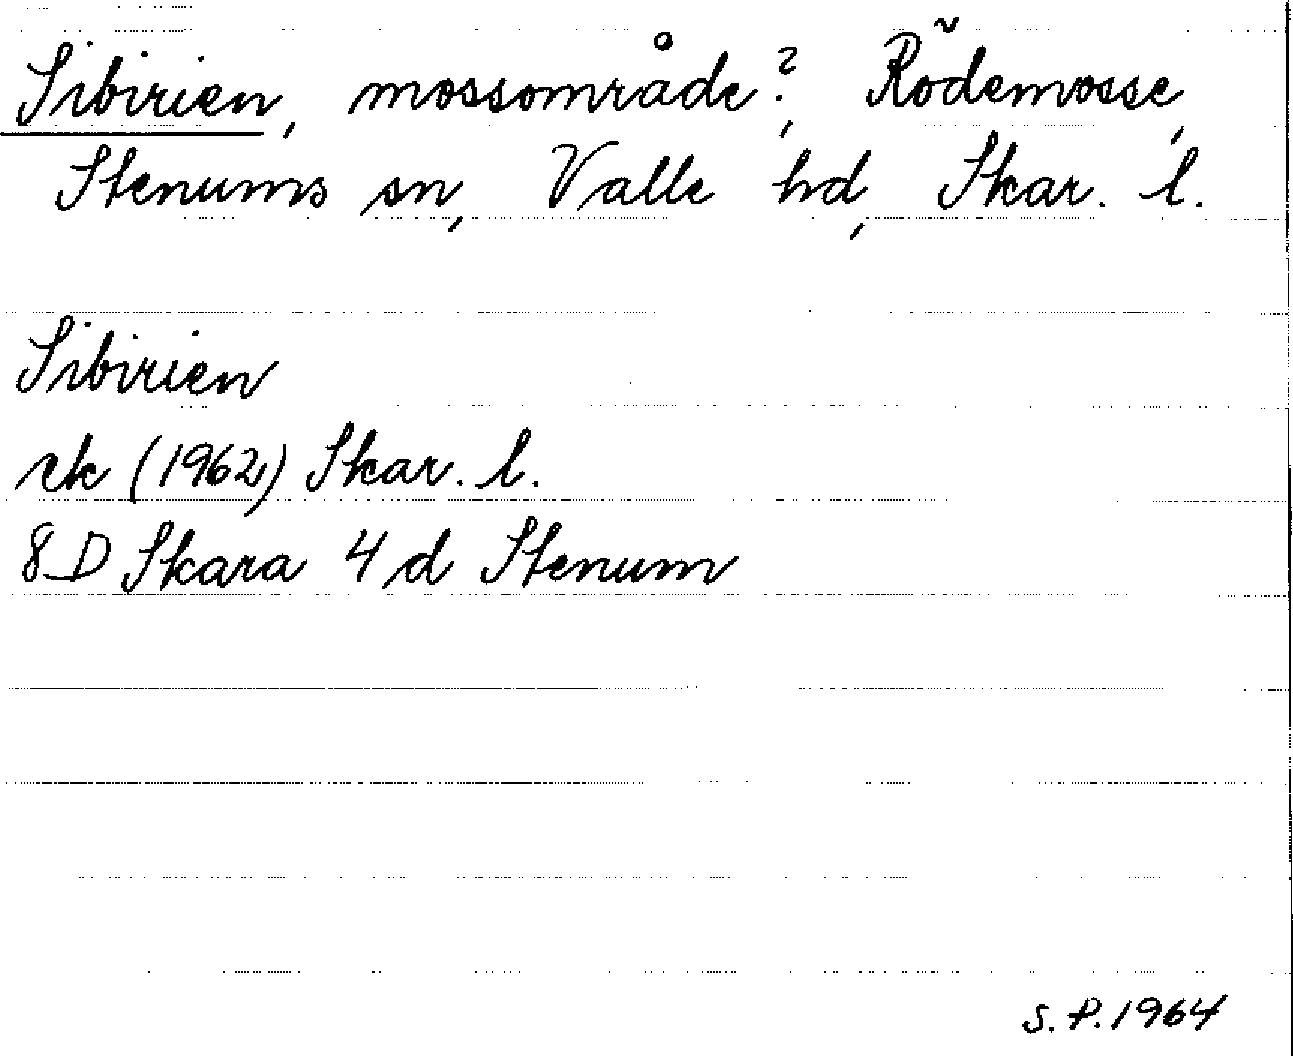 Sibirien, mossområde?, Rödemosse,
Stenums sn, Valle hd, Skar. l.
Sibirien
ek (1962) Skar. l.
8D Skara 4 d Stenum
S. P. 1964